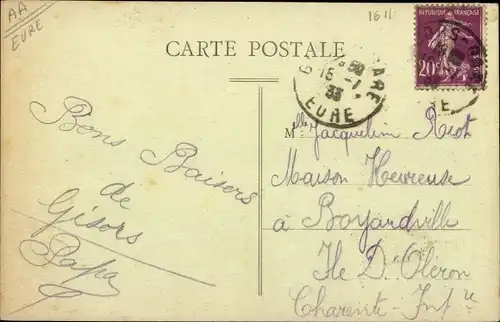 AA
EURE
1611
CARTE POSTALE
RÉPUBLIQUE FRANÇAISE
20c
GARE
15-1
33
EURE
Bons Baisers
de
Gisors
Papa
Mlle Jacqueline Riot
Maison Heureuse
à Boyardville
Ile D'Oléron
Charente Infre